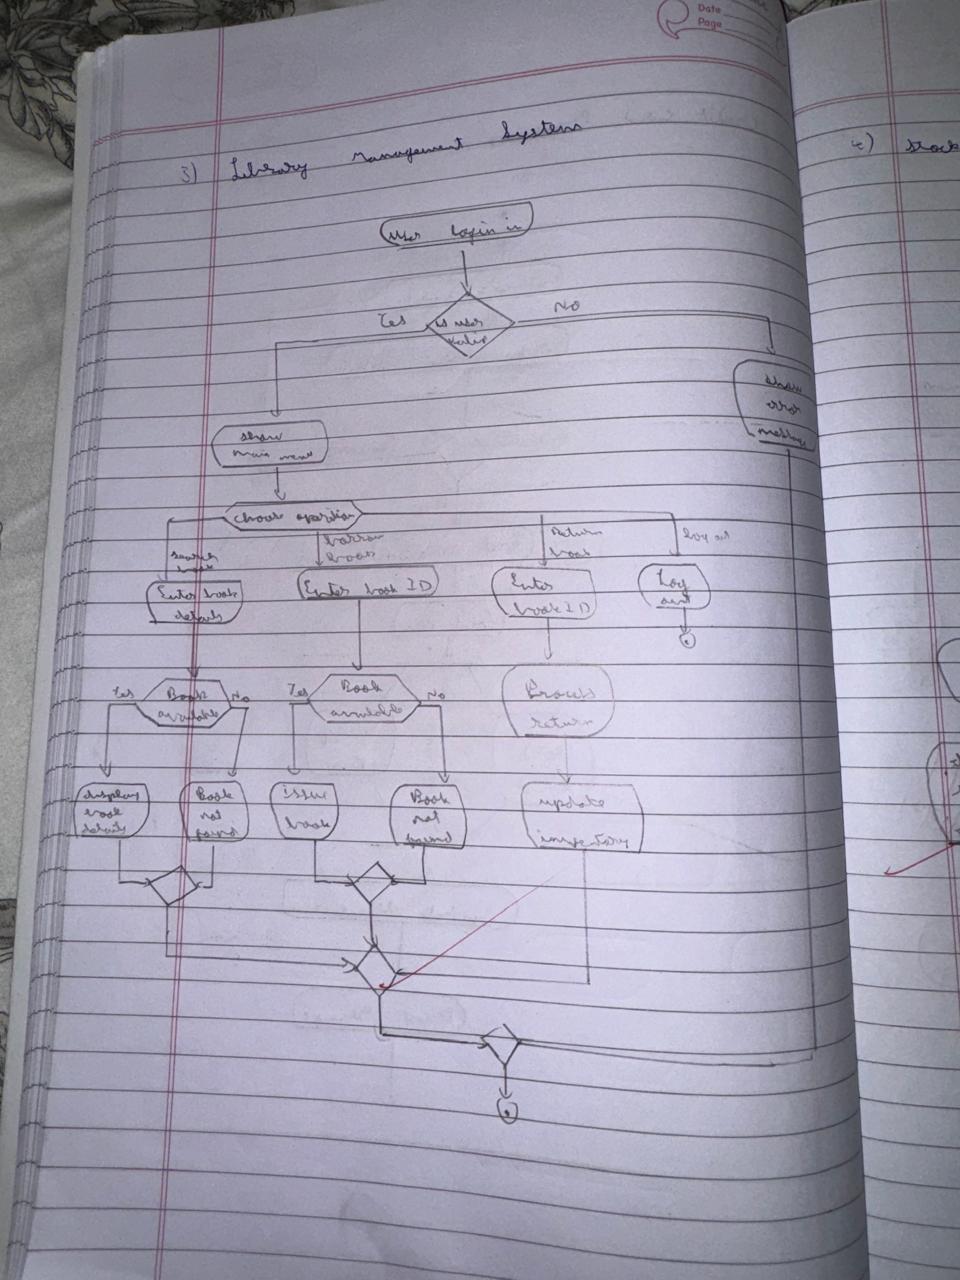 Date
Page
3) Library Management System
4) Stock
User Login in
Yes
is user
valid
No
show
error
message
show
main menu
choose operation
search
book
borrow
book
Return
book
log out
Enter book
details
Enter book ID
Enter
book ID
Log
out
Yes
Book
available
No
Yes
Book
available
No
Process
return
display
book
details
Book
not
found
issue
book
Book
not
found
update
inventory